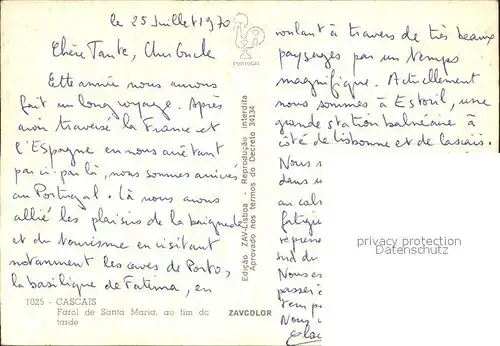 le 25 Juillet 1970
Chère Tante, Cher Oncle
Cette année nous avons
fait un long voyage. Après
avoir traversé la France et
l'Espagne en nous arrêtant
par-ci par-là, nous sommes arrivés
au Portugal. Là nous avons
allié les plaisirs de la baignade
et du tourisme en visitant
notamment les caves de Porto,
la basilique de Fatima, en
1025 - CASCAIS
Farol de Santa Maria, ao fim da
tarde
ZAVCOLOR
PORTUGAL
Edição ZAV-Lisboa - Reprodução interdita
Aprovado nos termos do Decreto 34134
roulant à travers de très beaux
paysages par un temps
magnifique. Actuellement
nous sommes à Estoril, une
grande station balnéaire à
côté de Lisbonne et de Cascais.
Nous
dans u
au cal
fatig
repren
sud du
Nous es
passer
temp
Nous
privacy protection
Datenschutz